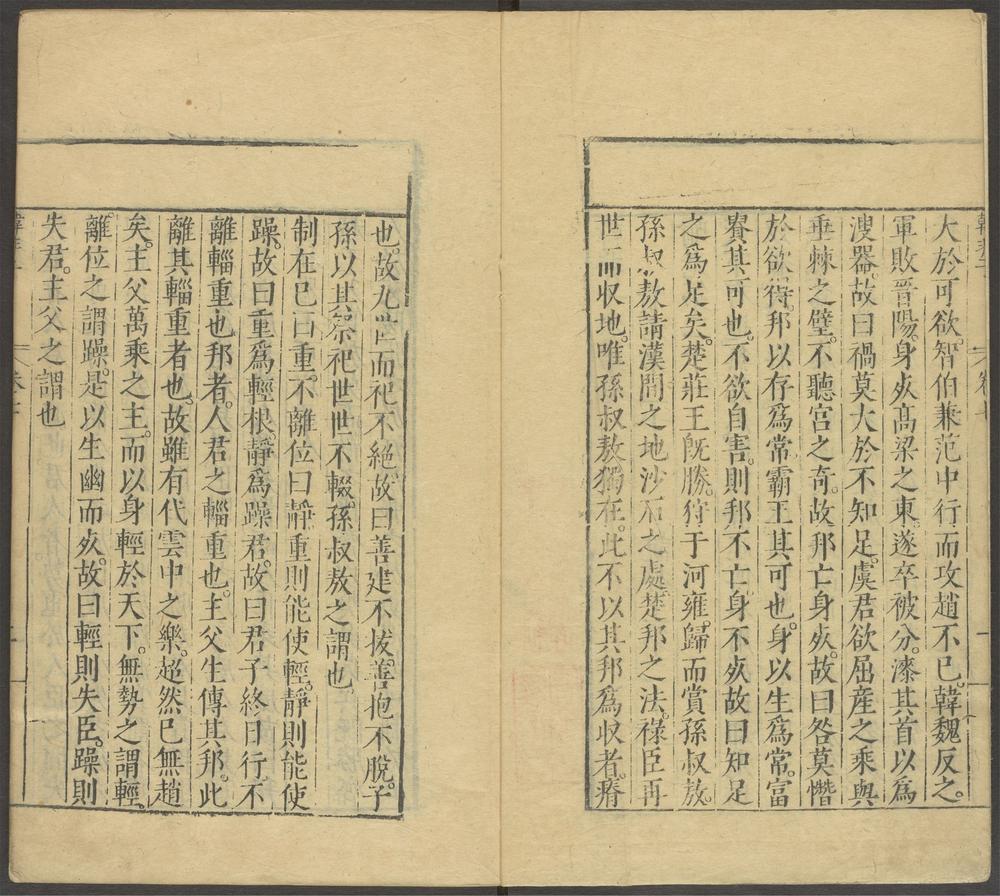 大於可欲。智伯兼范中行而攻趙不已。韓魏反之。
軍敗晉陽。身死高梁之東。遂卒被分。漆其首以爲
溲器。故曰禍莫大於不知足。虞君欲屈産之乘與
垂棘之璧。不聽宮之奇。故邦亡身死。故曰咎莫憯
於欲得。邦以存爲常。霸王其可也。身以生爲常。富
貴其可也。不欲自害。則邦不亡身不死。故曰知足
之爲足矣。楚莊王旣勝。狩于河雍。歸而賞孫叔敖。
孫叔敖請漢間之地沙石之處。楚邦之法。祿臣再
世而收地。唯孫叔敖獨在。此不以其邦爲収者。瘠
也。故九世而祀不絕。故曰善建不拔。善抱不脫。子
孫以其祭祀世世不輟。孫叔敖之謂也
制在巳曰重。不離位曰靜。重則能使輕。靜則能使
躁。故曰重爲輕根。靜爲躁君。故曰君子終日行。不
離輜重也。邦者。人君之輜重也。主父生傳其邦。此
離其輜重者也。故雖有代雲中之樂。超然巳無趙
矣。主父萬乘之主。而以身輕於天下。無勢之謂輕。
離位之謂躁。是以生幽而死。故曰輕則失臣。躁則
失君。主父之謂也